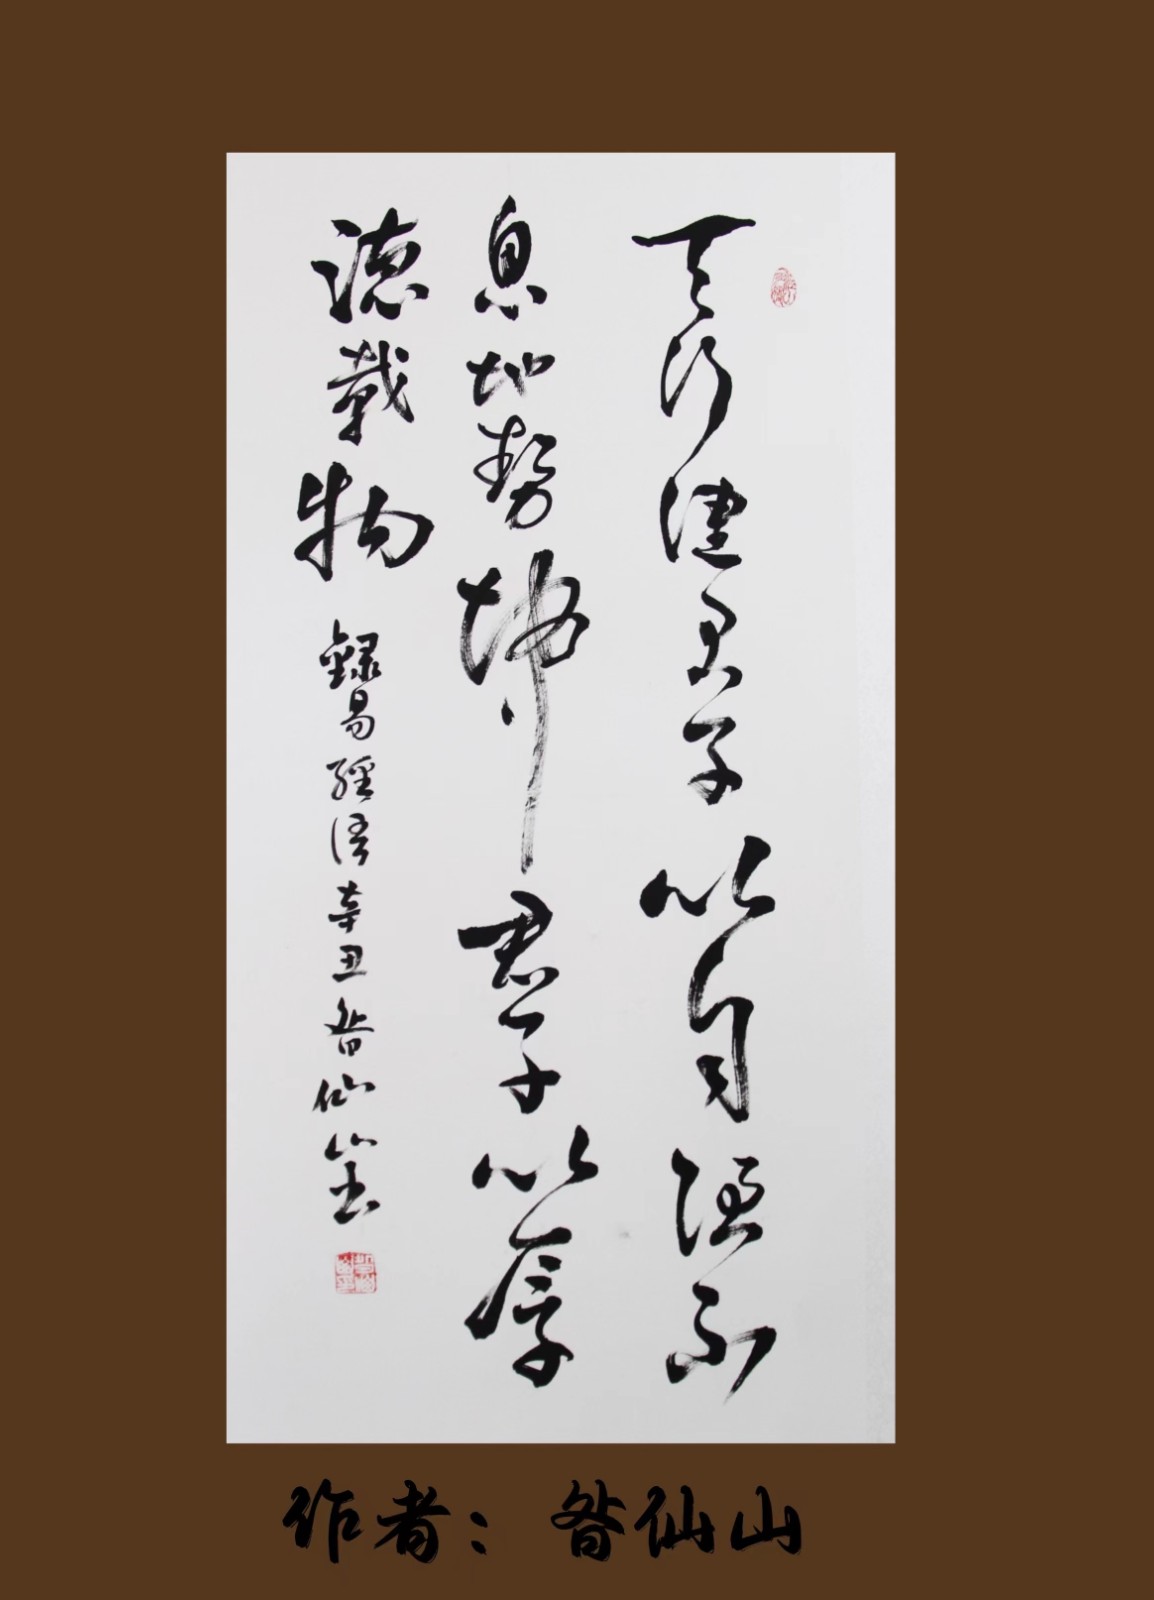 天行健君子以自强不
息地勢坤君子以厚
德載物
録易經語辛丑昝仙山書
作者：昝仙山